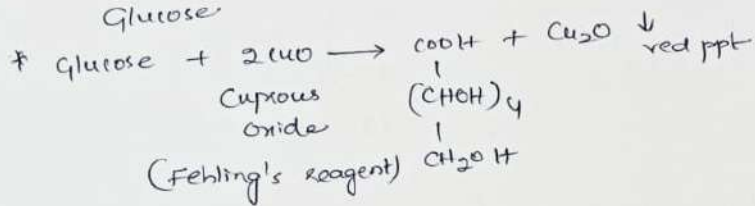 Glucose
* Glucose + 2CuO ⟶ COOH + Cu₂O ↓ red ppt
|
Cuprous (CHOH)₄
oxide |
(Fehling's reagent) CH₂OH